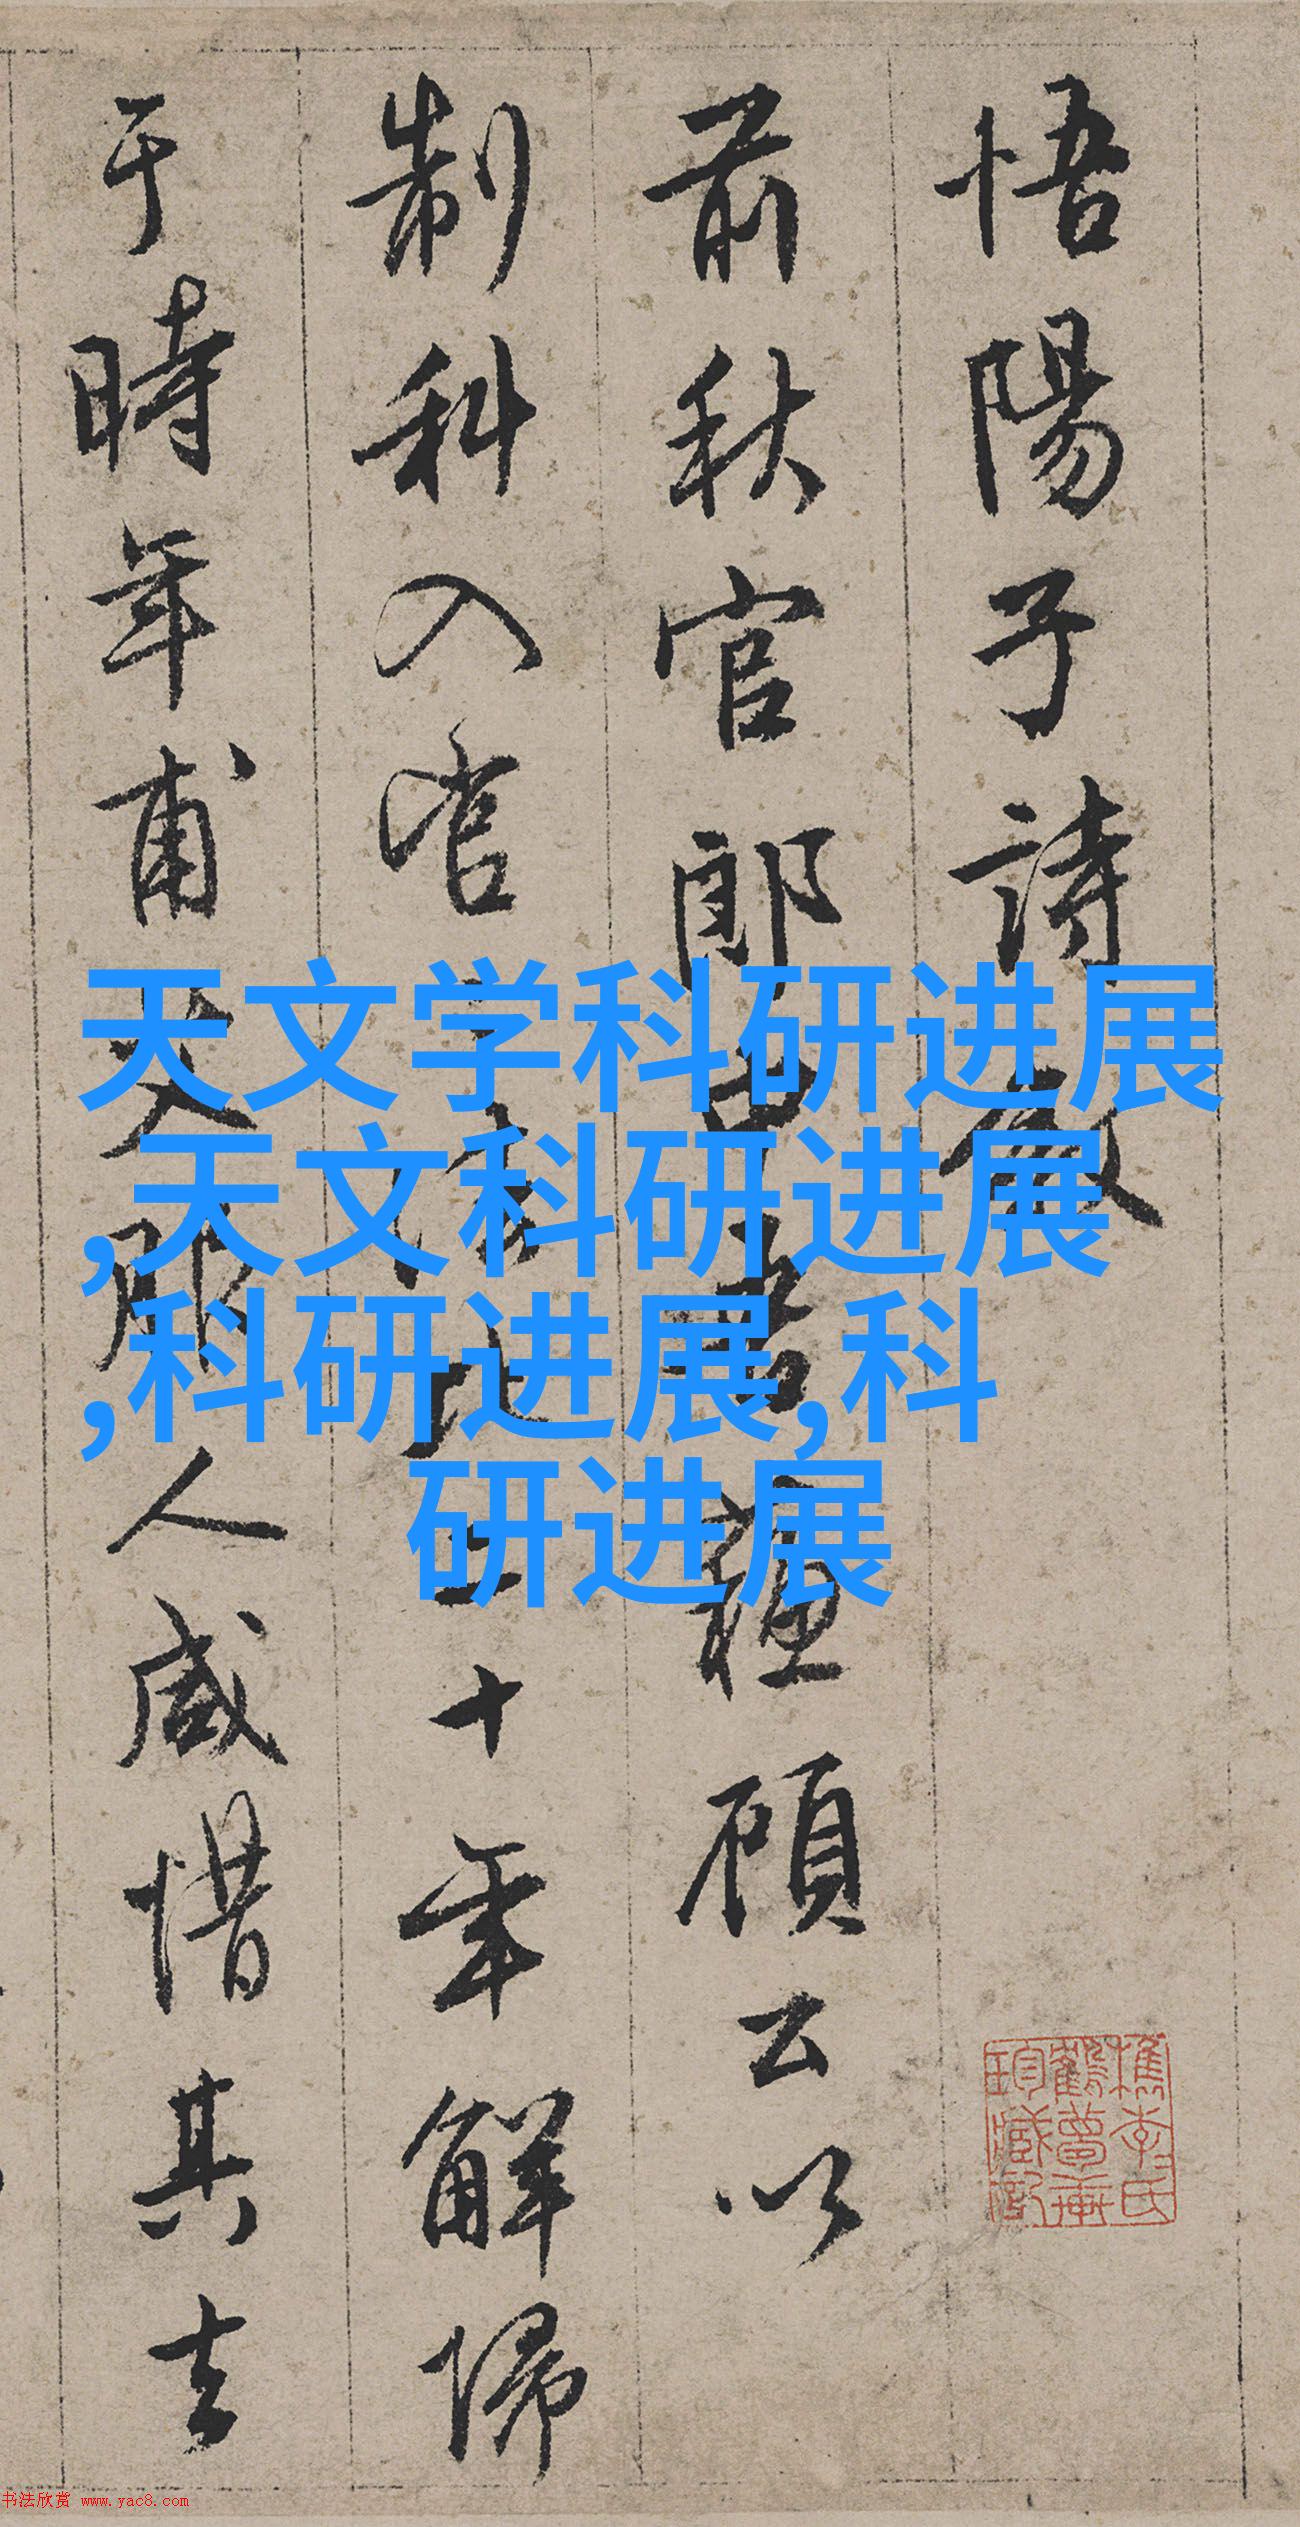 悟陽子詩敘
前秋官郎中吾蘇顧公以
制科入官
二十年解歸
于時年甫
人咸惜其去
天文学科研进展
,天文科研进展
,科研进展,科
研进展
书法欣赏 www.yac8.com